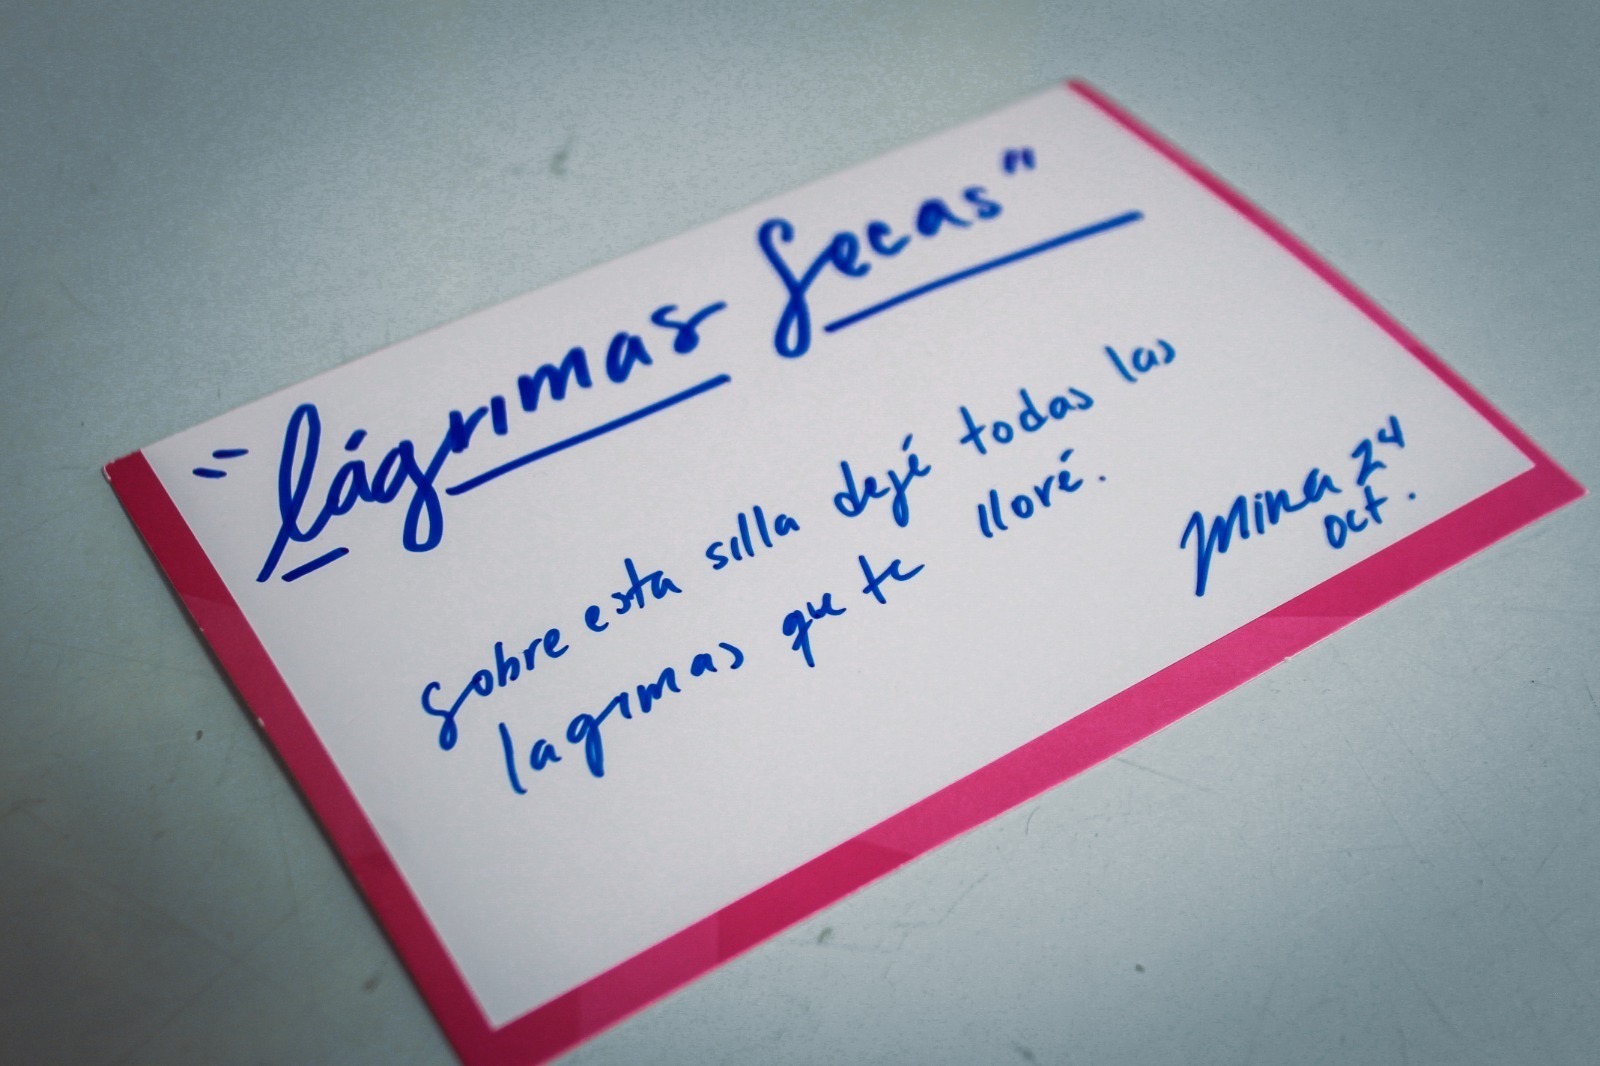 "lágrimas secas"
sobre esta silla dejé todas las
lagrimas que te lloré.
Mina 24
oct.